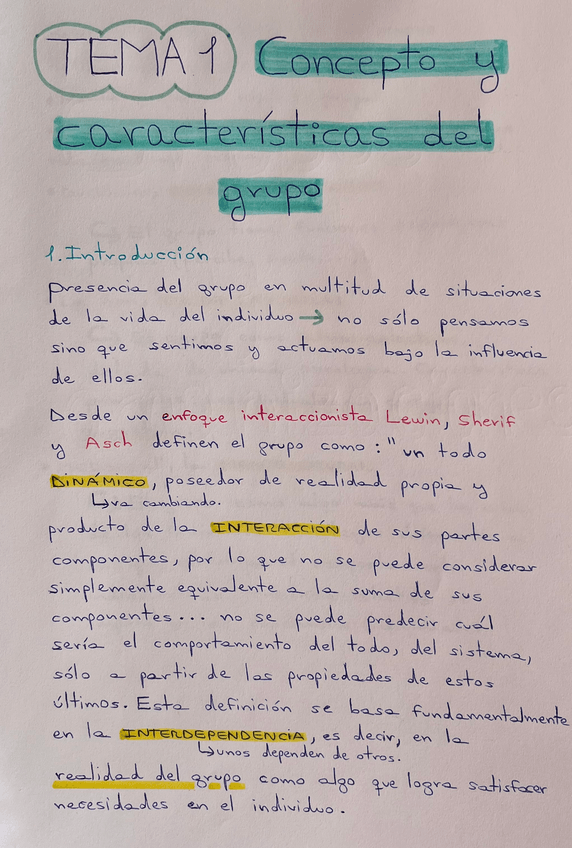 TEMA 1 Concepto y
características del
grupo
1. Introducción
Presencia del grupo en multitud de situaciones
de la vida del individuo → no sólo pensamos
sino que sentimos y actuamos bajo la influencia
de ellos.
Desde un enfoque interaccionista Lewin, Sherif
y Asch definen el grupo como: "un todo
DINÁMICO, poseedor de realidad propia y
↳va cambiando.
producto de la INTERACCIÓN de sus partes
componentes, por lo que no se puede considerar
simplemente equivalente a la suma de sus
componentes... no se puede predecir cuál
sería el comportamiento del todo, del sistema,
sólo a partir de las propiedades de estos
últimos. Esta definición se basa fundamentalmente
en la INTERDEPENDENCIA, es decir, en la
↳unos dependen de otros.
realidad del grupo como algo que logra satisfacer
necesidades en el individuo.